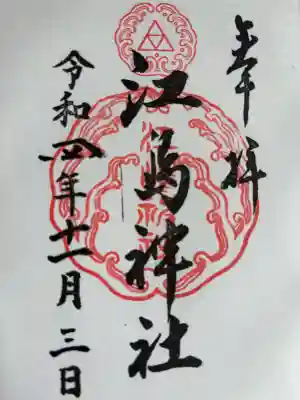 奉拝
江島神社
令和五年十一月三日